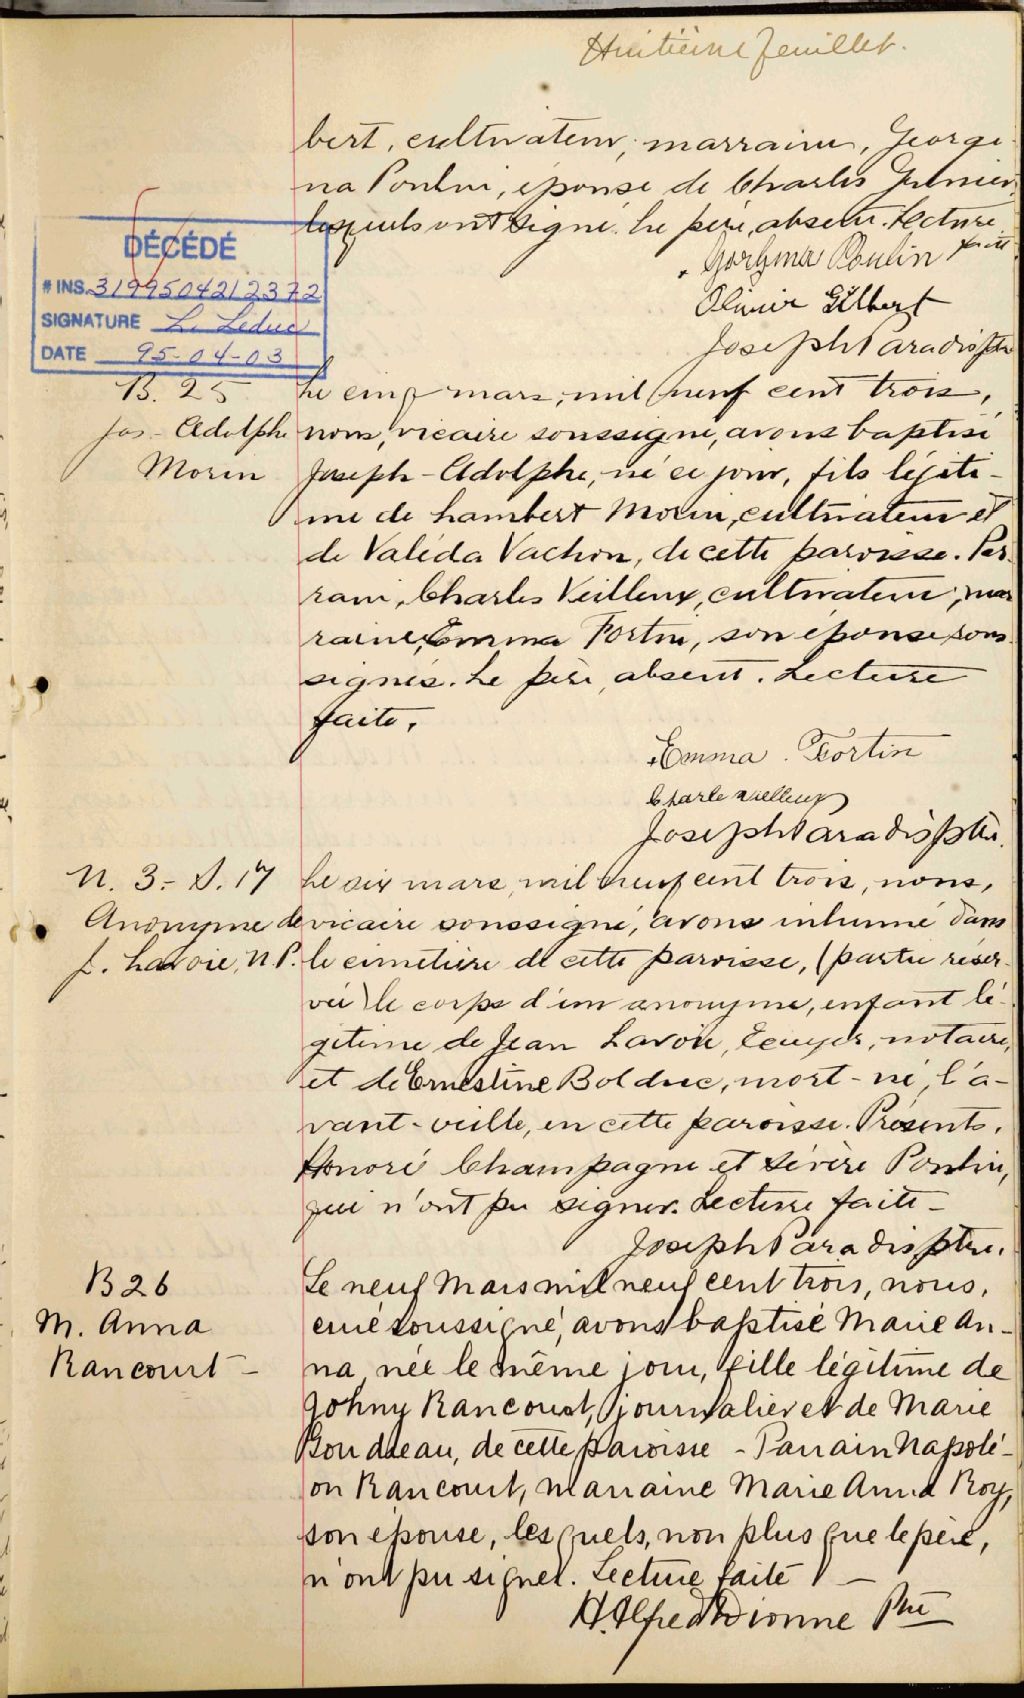 Huitième feuillet.
bert, cultivateur; marraine, Georgi-
na Poulin, épouse de Charles Grenier,
lesquels ont signé. Le père, absent. Lecture
faite
Gorgina Poulin
Olivier Gilbert
Joseph Paradis ptre
DÉCÉDÉ
# INS. 3199504212372
SIGNATURE L. Leduc
DATE 95-04-03
B. 25
Jos-Adolphe
Morin
Le cinq mars, mil neuf cent trois,
nous, vicaire soussigné, avons baptisé
Joseph-Adolphe, né ce jour, fils légiti-
me de Lambert Morin, cultivateur et
de Valéda Vachon, de cette paroisse. Par-
rain, Charles Veilleux, cultivateur; mar-
raine, Emma Fortin, son épouse sous-
signés. Le père, absent. Lecture
faite.
Emma Fortin
Charle Vielleux
Joseph Paradis ptre.
N. 3.- S. 17
Anonyme de
J. Lavoie, N.P.
Le six mars, mil neuf cent trois, nous,
vicaire soussigné, avons inhumé dans
le cimetière de cette paroisse, (partie réser-
vée) le corps d'un anonyme, enfant lé-
gitime de Jean Lavoie, Ecuyer, notaire,
et de Ernestine Bolduc, mort-né, l'a-
vant-veille, en cette paroisse. Présents,
Honoré Champagne et Sévère Poulin,
qui n'ont pu signer. Lecture faite-
Joseph Paradis, ptre.
B 26
M. Anna
Rancourt-
Le neuf Mars mil neuf cent trois, nous,
curé soussigné, avons baptisé Marie An-
na, née le même jour, fille légitime de
Johny Rancourt, journalier et de Marie
Boudreau, de cette paroisse - Parrain Napolé-
on Rancourt, marraine Marie Anna Roy,
son épouse, lesquels, non plus que le père,
n'ont pu signer. Lecture faite -
H. Alfred Dionne Ptre